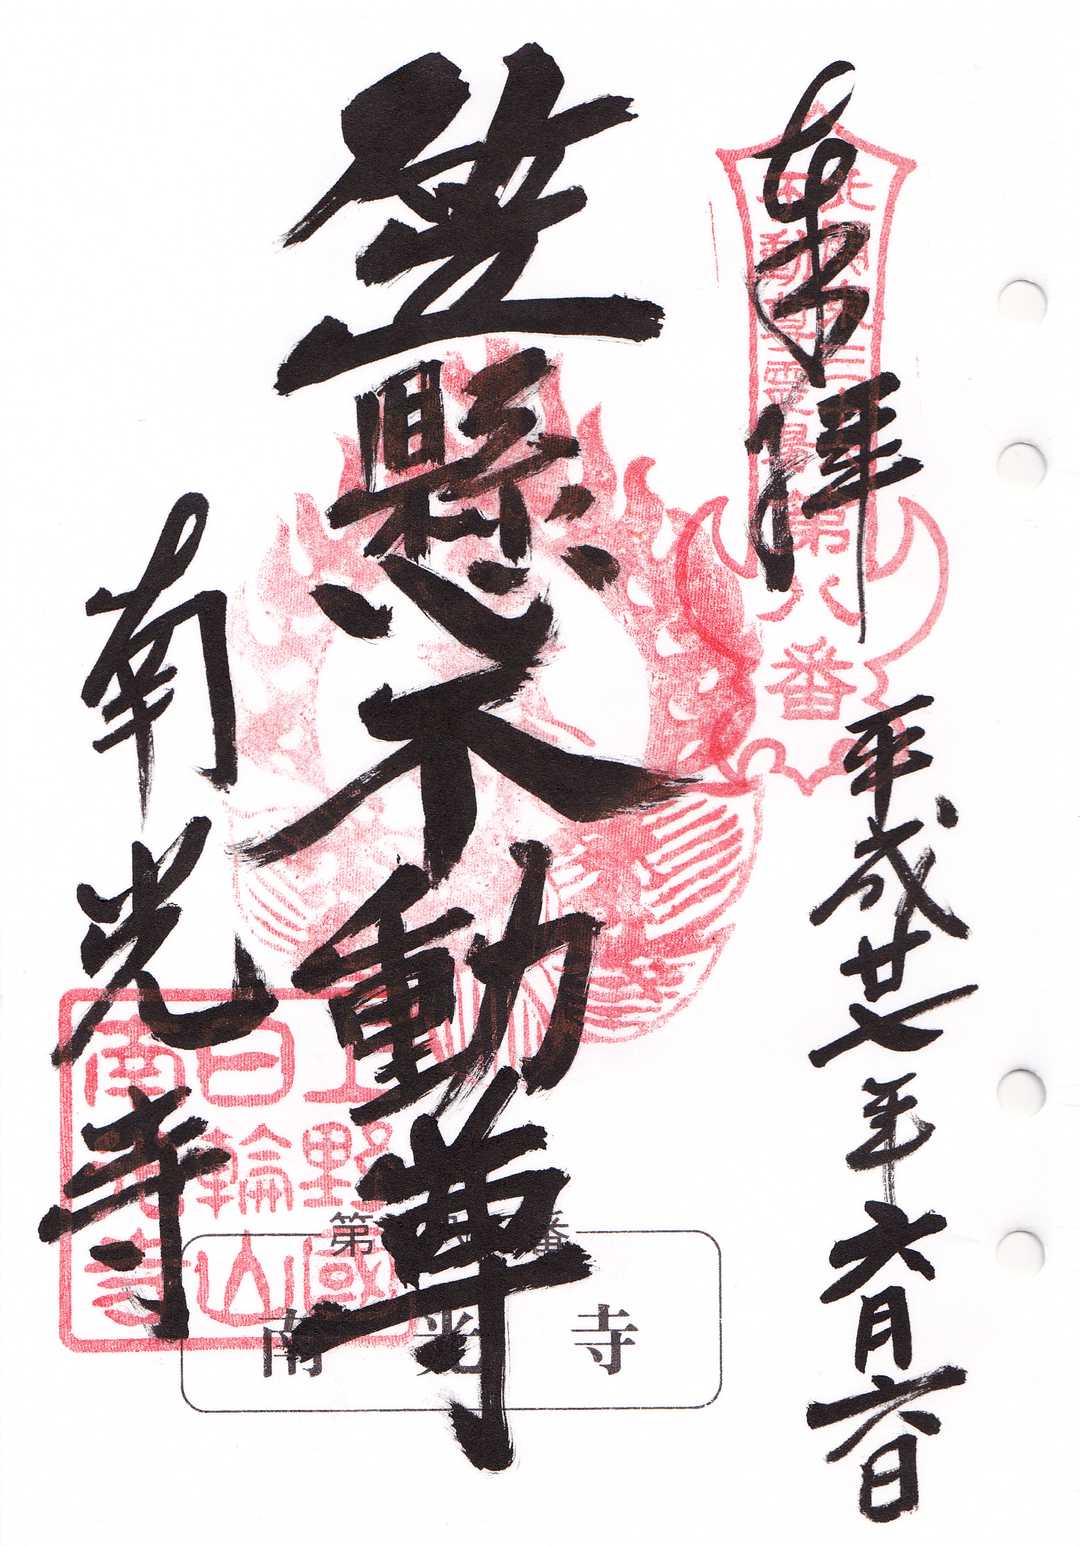 奉拝
平成廿七年六月六日
笠懸不動尊
南光寺
北関東三十六
不動尊霊場
第八番
上野國
日輪山
南光寺
第八番
南光寺